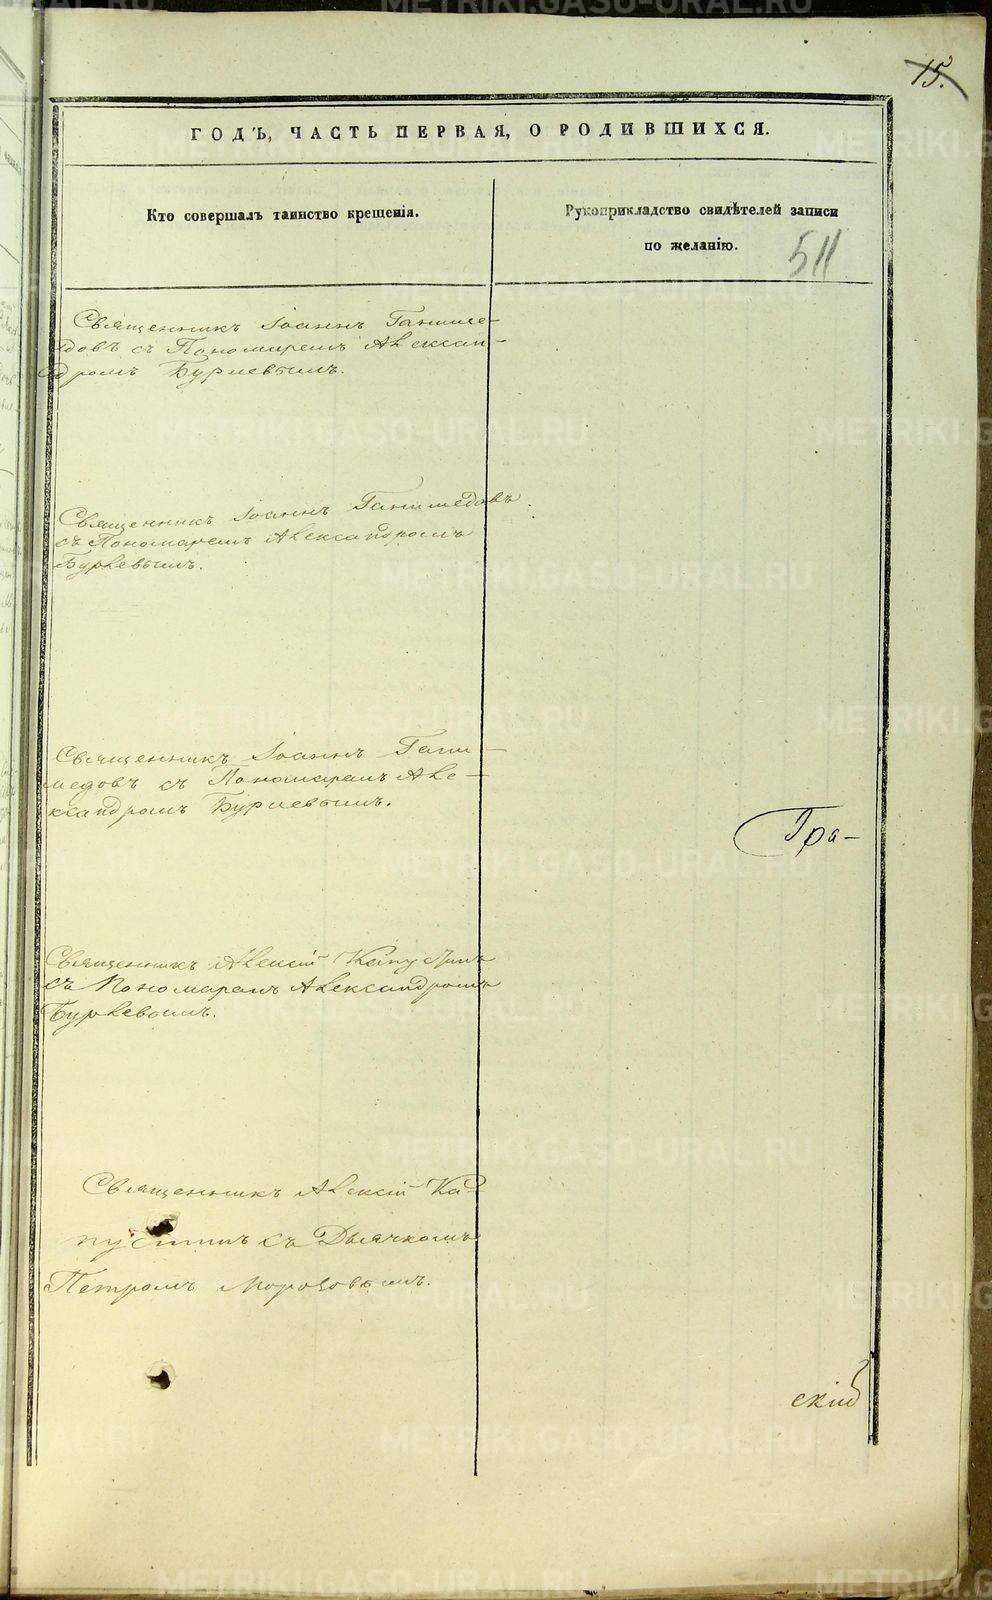 15.
ГОДЪ, ЧАСТЬ ПЕРВАЯ, О РОДИВШИХСЯ.
Кто совершалъ таинство крещенія.
Рукоприкладство свидѣтелей записи
по желанію.
511
Священникъ Іоаннъ Ганиме-
довъ съ Пономаремъ Алексан-
дромъ Бурлевымъ.
Священникъ Іоаннъ Ганимедовъ
съ Пономаремъ Александромъ
Бурлевымъ.
Священникъ Іоаннъ Гани-
медовъ съ Пономаремъ Але-
ксандромъ Бурлевымъ.
Гра-
Священникъ Алексій Капустинъ
съ Пономаремъ Александромъ
Бурлевымъ.
Священникъ Алексій Ка-
пустинъ съ Дьячкомъ
Петромъ Морозовымъ.
скій
METRIKI.GASO-URAL.RU